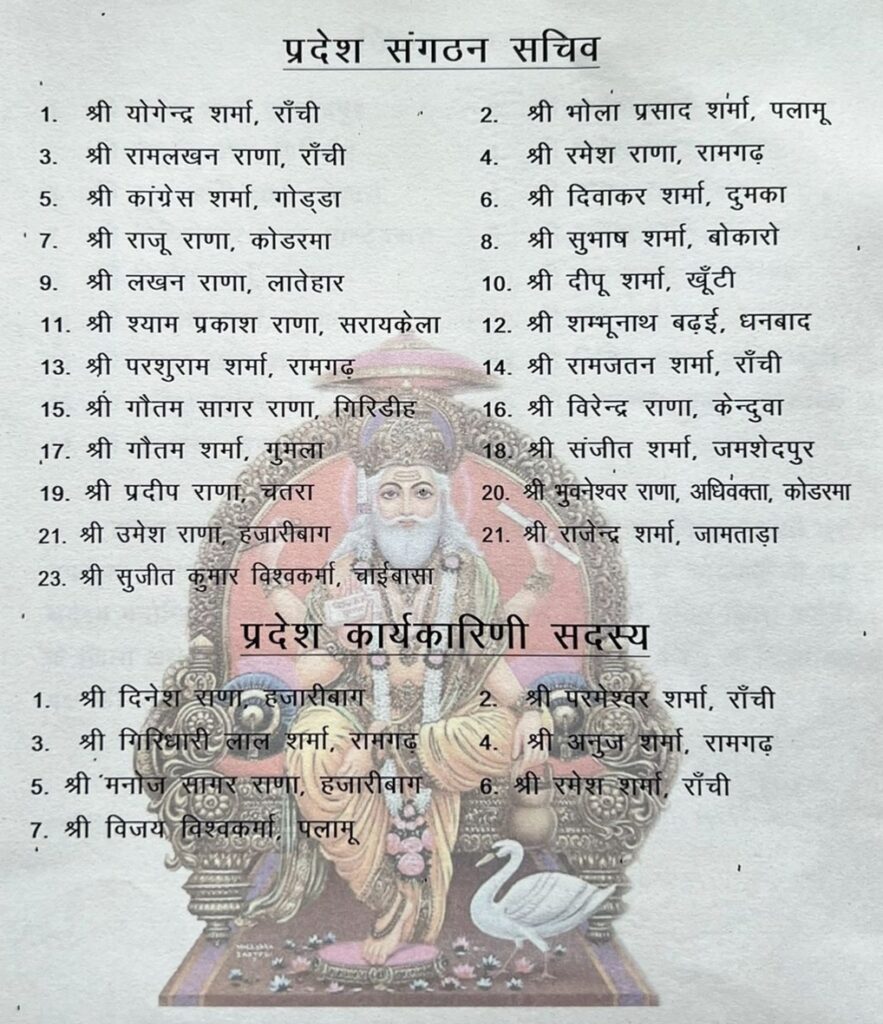 प्रदेश संगठन सचिव
1. श्री योगेन्द्र शर्मा, राँची 2. श्री भोला प्रसाद शर्मा, पलामू
3. श्री रामलखन राणा, राँची 4. श्री रमेश राणा, रामगढ़
5. श्री कांग्रेस शर्मा, गोड्डा 6. श्री दिवाकर शर्मा, दुमका
7. श्री राजू राणा, कोडरमा 8. श्री सुभाष शर्मा, बोकारो
9. श्री लखन राणा, लातेहार 10. श्री दीपू शर्मा, खूँटी
11. श्री श्याम प्रकाश राणा, सरायकेला 12. श्री शम्भूनाथ बढ़ई, धनबाद
13. श्री परशुराम शर्मा, रामगढ़ 14. श्री रामजतन शर्मा, राँची
15. श्री गौतम सागर राणा, गिरिडीह 16. श्री विरेन्द्र राणा, केन्दुवा
17. श्री गौतम शर्मा, गुमला 18. श्री संजीत शर्मा, जमशेदपुर
19. श्री प्रदीप राणा, चतरा 20. श्री भुवनेश्वर राणा, अधिवक्ता, कोडरमा
21. श्री उमेश राणा, हजारीबाग 21. श्री राजेन्द्र शर्मा, जामताड़ा
23. श्री सुजीत कुमार विश्वकर्मा, चाईबासा
प्रदेश कार्यकारिणी सदस्य
1. श्री दिनेश राणा, हजारीबाग 2. श्री परमेश्वर शर्मा, राँची
3. श्री गिरिधारी लाल शर्मा, रामगढ़ 4. श्री अनुज शर्मा, रामगढ़
5. श्री मनोज सागर राणा, हजारीबाग 6. श्री रमेश शर्मा, राँची
7. श्री विजय विश्वकर्मा, पलामू